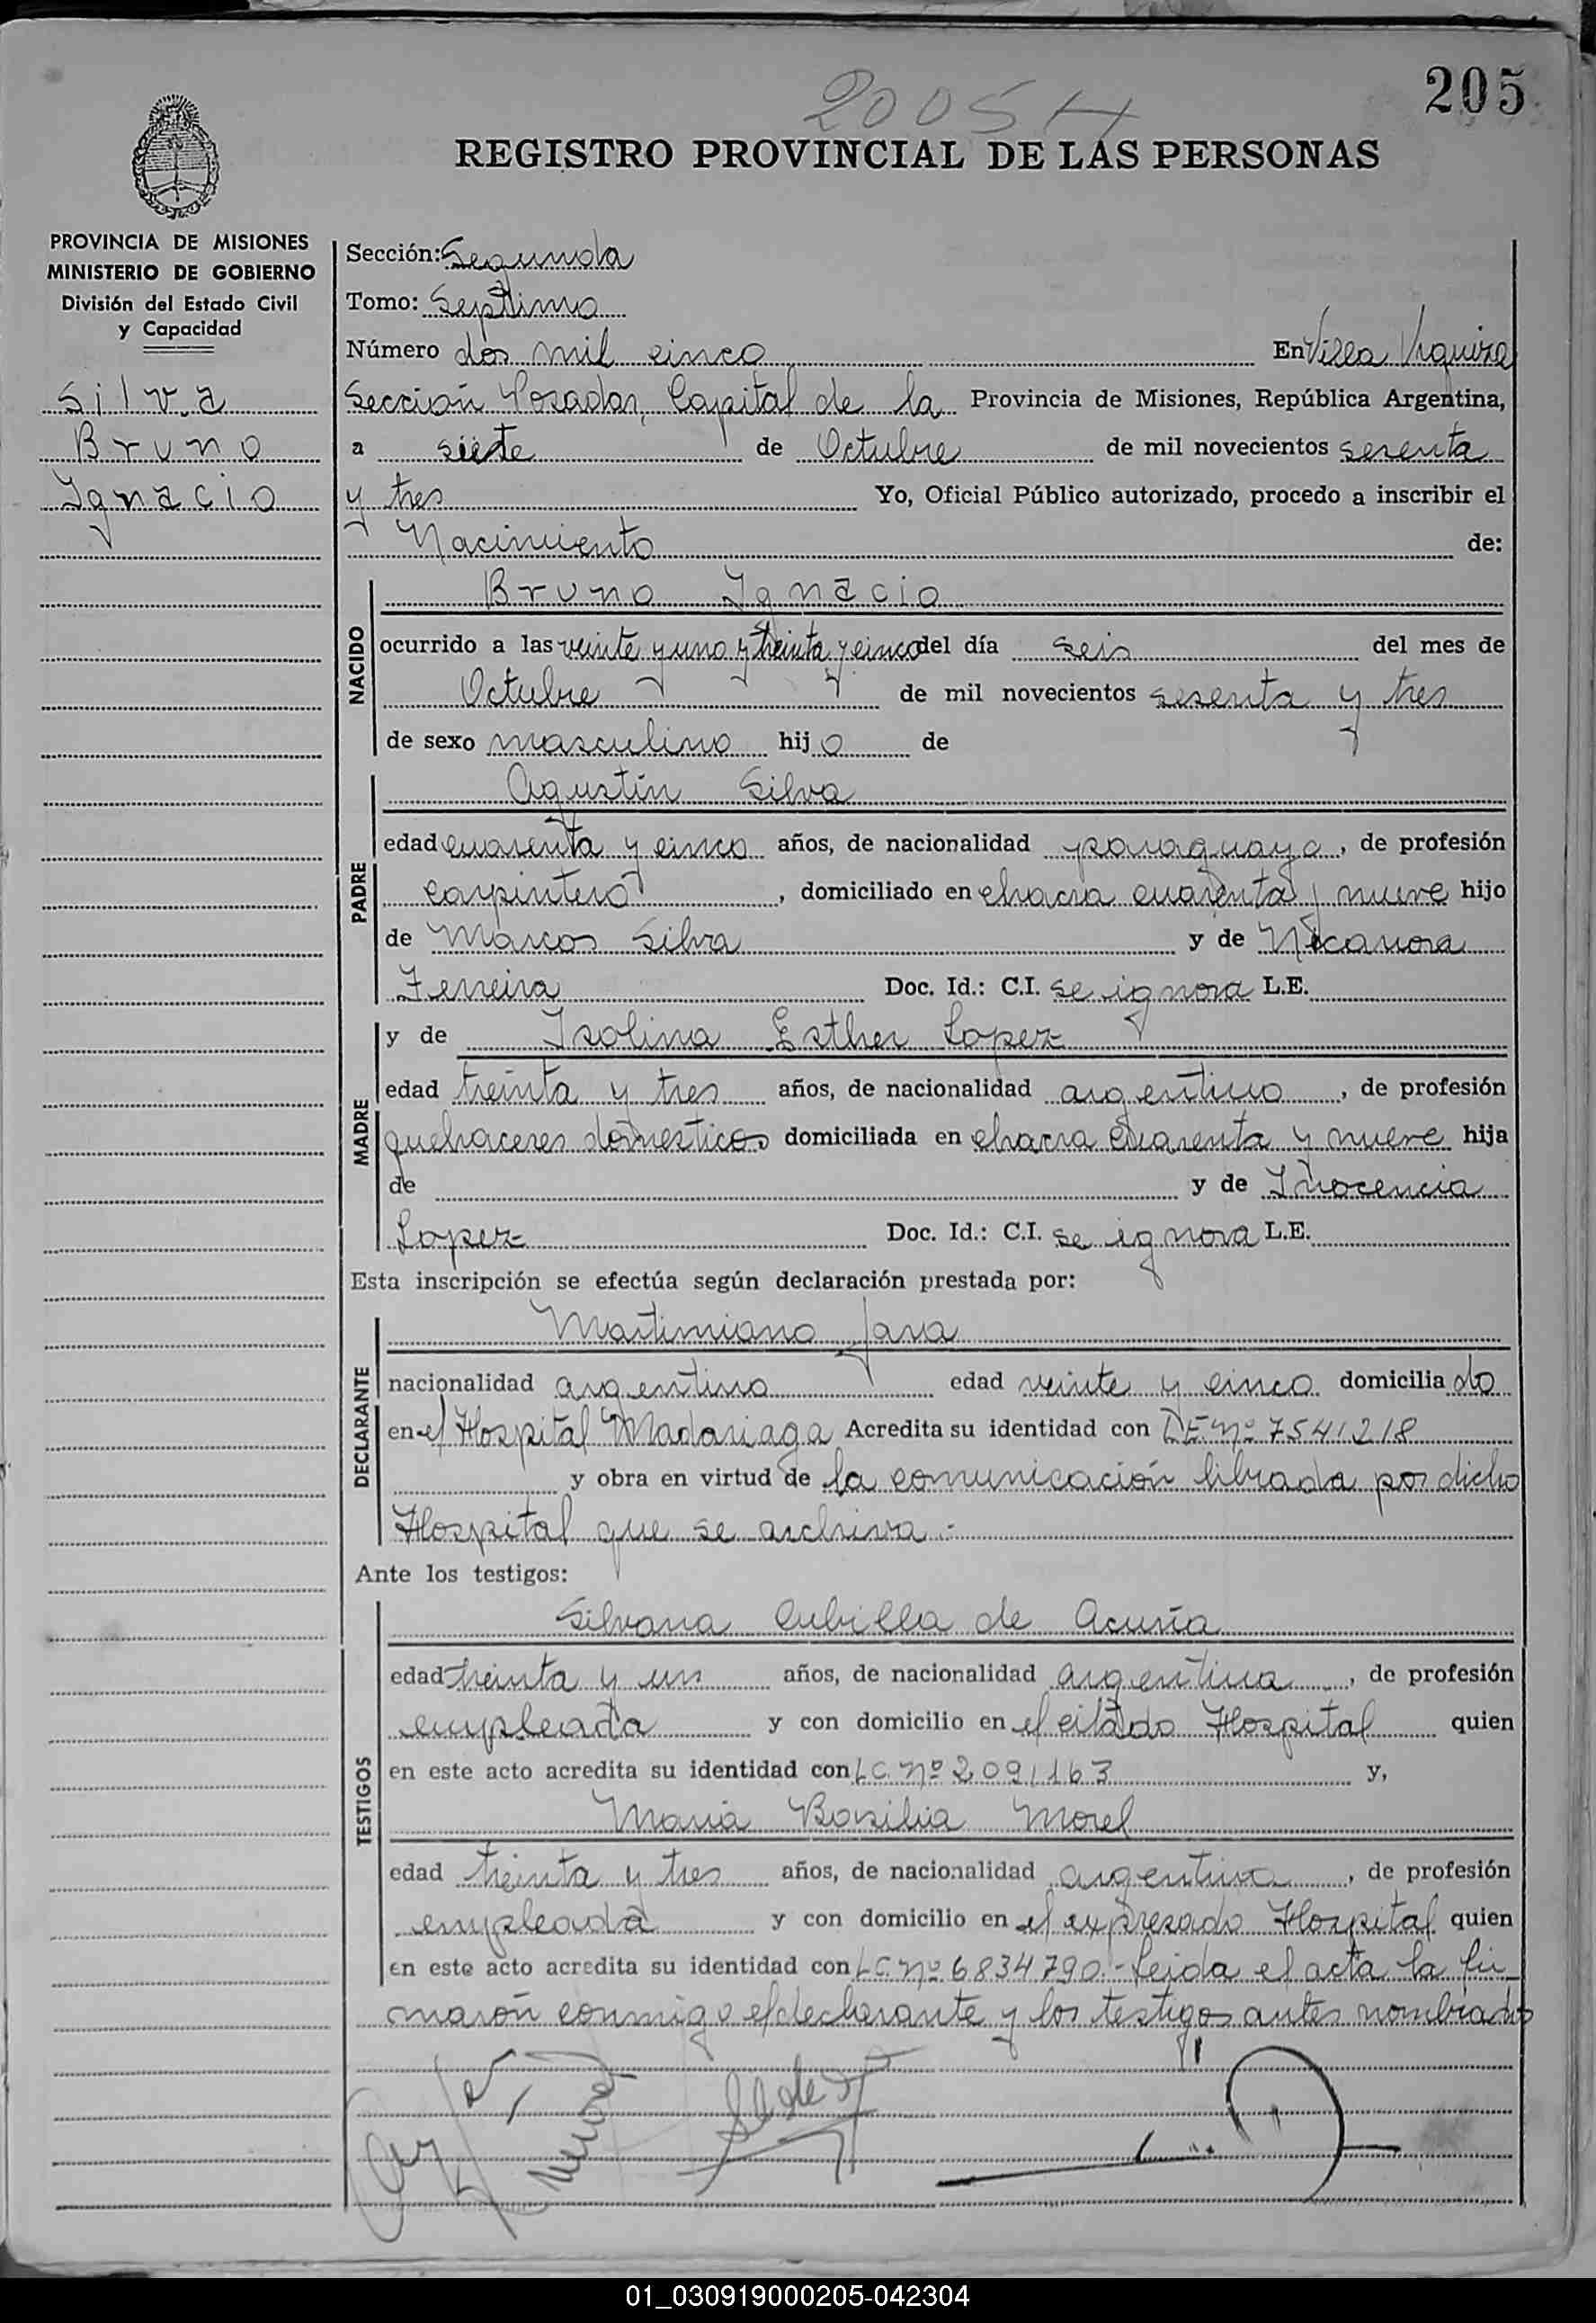 205
2005 H
REGISTRO PROVINCIAL DE LAS PERSONAS
PROVINCIA DE MISIONES
MINISTERIO DE GOBIERNO
División del Estado Civil
y Capacidad
Silva
Bruno
Ignacio
Sección: Segunda
Tomo: Septimo
Número dos mil cinco En Villa Urquiza
Sección Posadas, Capital de la Provincia de Misiones, República Argentina,
a siete de Octubre de mil novecientos sesenta
y tres Yo, Oficial Público autorizado, procedo a inscribir el
Nacimiento de:
NACIDO
Bruno Ignacio
ocurrido a las veinte y uno y treinta y cinco del día seis del mes de
Octubre de mil novecientos sesenta y tres
de sexo masculino hijo de
PADRE
Agustín Silva
edad cuarenta y cinco años, de nacionalidad paraguaya, de profesión
carpintero, domiciliado en chacra cuarenta y nueve hijo
de Marcos Silva y de Nicanora
Ferreira Doc. Id.: C.I. se ignora L.E.
MADRE
y de Isolina Esther Lopez
edad treinta y tres años, de nacionalidad argentino, de profesión
quehaceres domesticos domiciliada en chacra cuarenta y nueve hija
de y de Inocencia
Lopez Doc. Id.: C.I. se ignora L.E.
Esta inscripción se efectúa según declaración prestada por:
DECLARANTE
Martimiano Jara
nacionalidad argentino edad veinte y cinco domiciliado
en el Hospital Madariaga Acredita su identidad con LE Nº 7541218
y obra en virtud de la comunicación librada por dicho
Hospital que se archiva.-
Ante los testigos:
TESTIGOS
Silvana Cubilla de Acuña
edad treinta y un años, de nacionalidad argentina, de profesión
empleada y con domicilio en el citado Hospital quien
en este acto acredita su identidad con LC. Nº 2091163 y,
Maria Basilia Morel
edad treinta y tres años, de nacionalidad argentina, de profesión
empleada y con domicilio en el expresado Hospital quien
en este acto acredita su identidad con LC. Nº 6834790.- Leida el acta la fir-
maron conmigo el declarante y los testigos antes nombrados
01_030919000205-042304